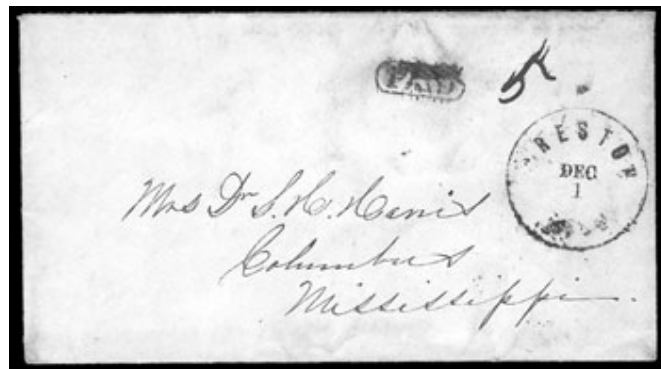 PAID 5
RESTO
DEC
1
Mrs Dr S. H. Harris
Columbus
Mississippi